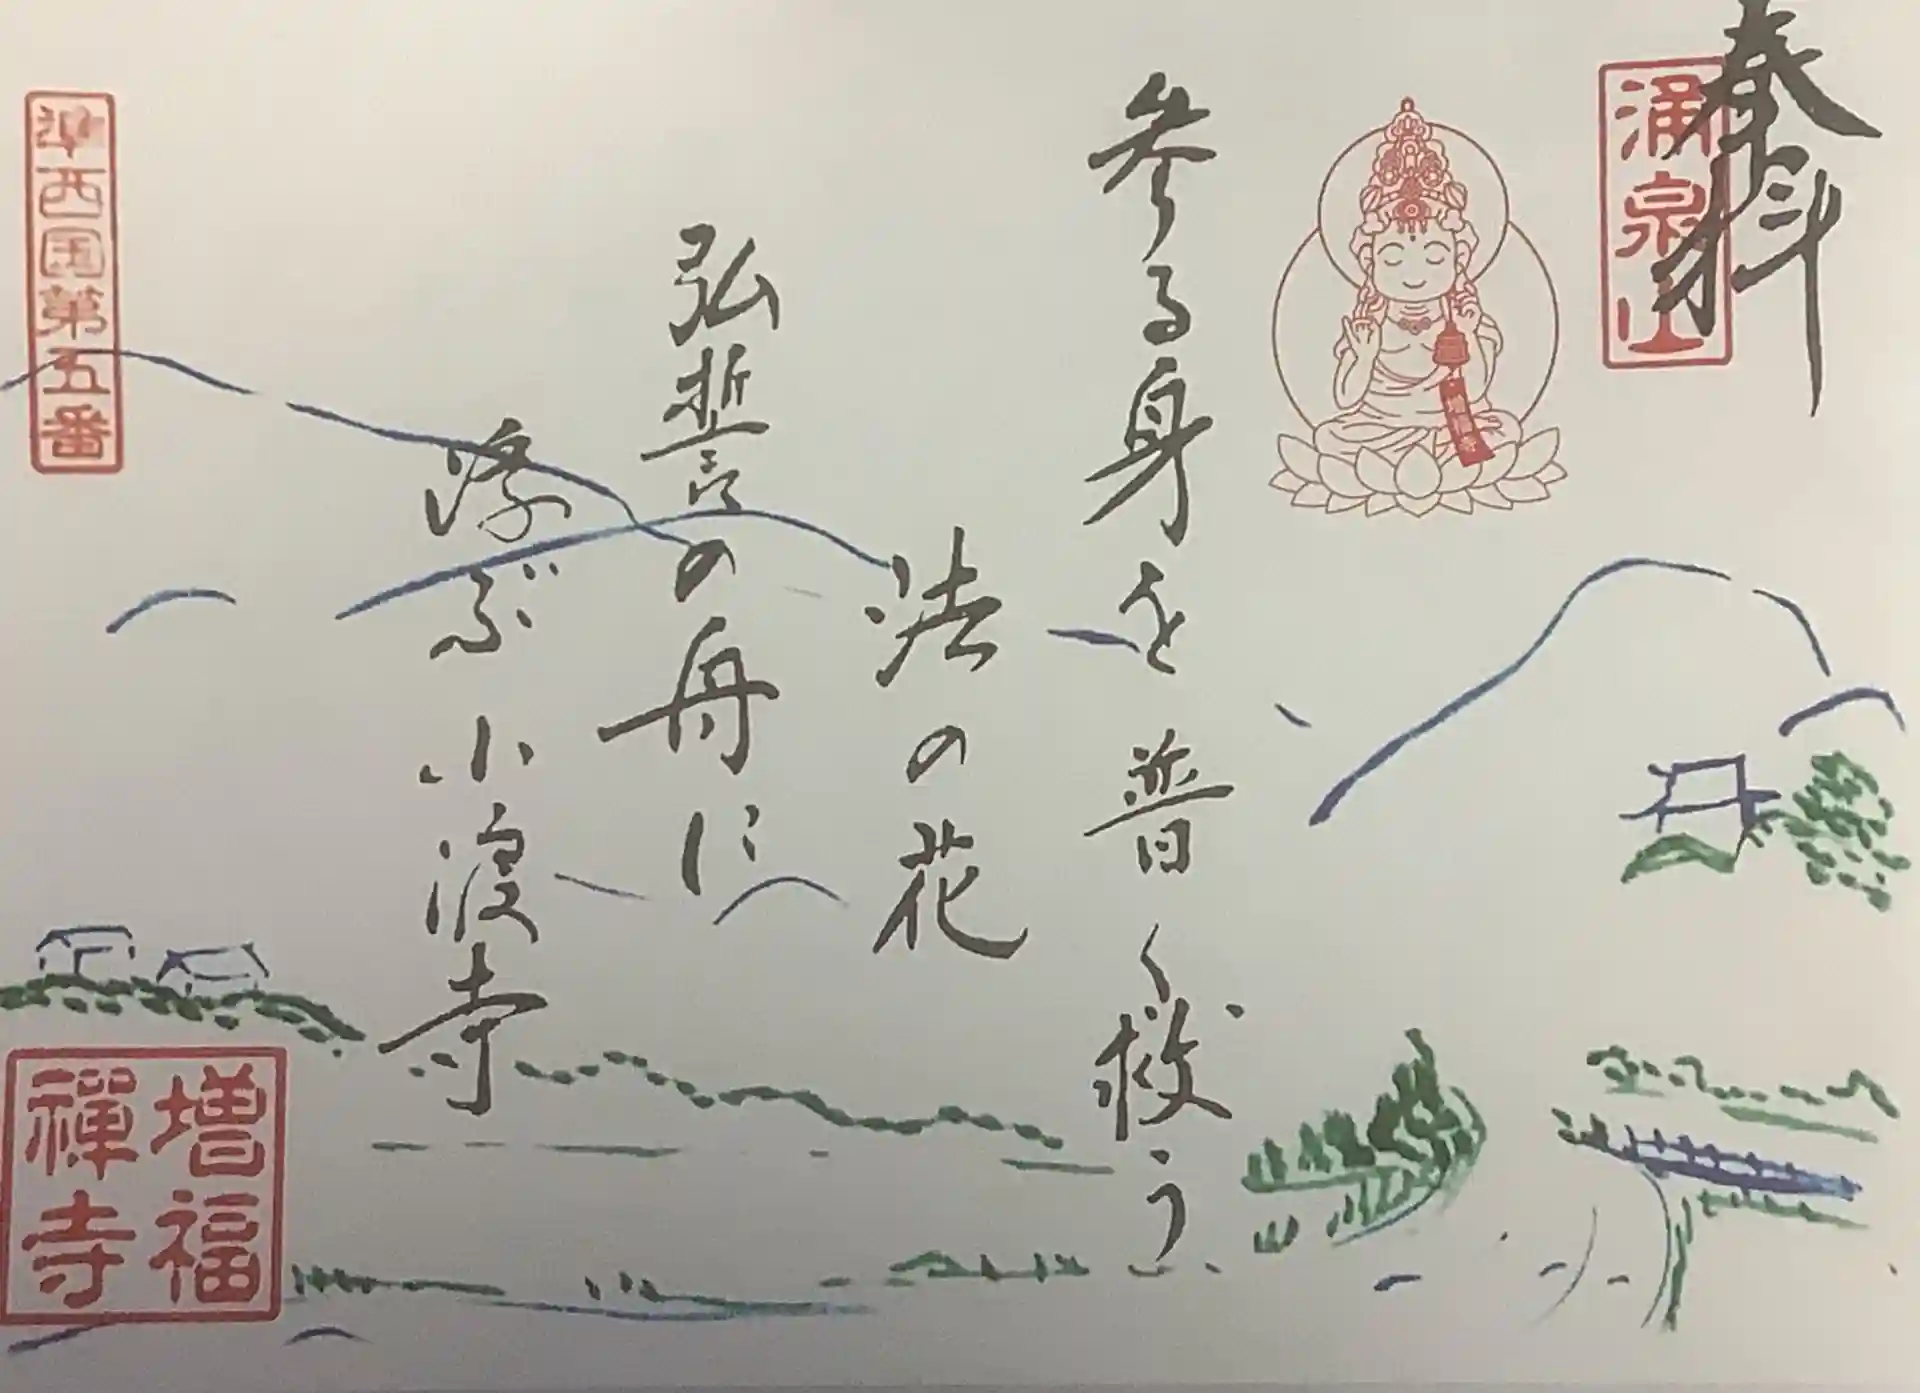 奉拝
涌泉山
増福寺
参る身を普く救う
法の花
弘誓の舟に
浮ぶ小渡寺
準西国第五番
増福
禪寺